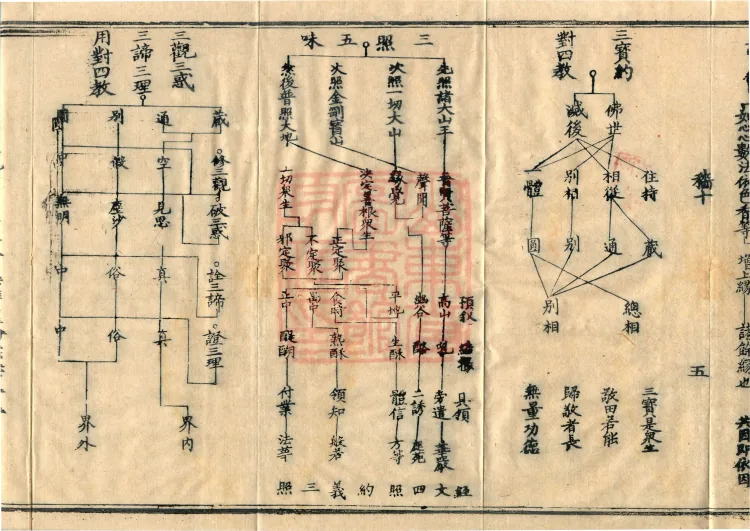 三寶約
對四教
佛世
滅後
住持
相從
別相
一體
藏
通
別
圓
總相
別相
三寶是眾生
敬田若能
歸敬者長
無量功德
五
三照五味
先照諸大山王
次照一切大山
次照金剛寶山
然後普照大地
菩薩等
聲聞
緣覺
決定善根眾生
一切眾生
正定聚
不定聚
邪定聚
高山
乳
幽谷
酪
平地
生酥
食時
熟酥
禺中
正中
醍醐
旁遣
華嚴
二誘
鹿苑
體信
方等
領知
般若
付業
法華
經
文
四
照
約
義
三
照
三觀三惑
三諦三理
用對四教
藏
通
別
圓
修三觀
破三惑
詮三諦
證三理
空
假
中
見思
塵沙
無明
真
俗
中
真
俗
中
界內
界外